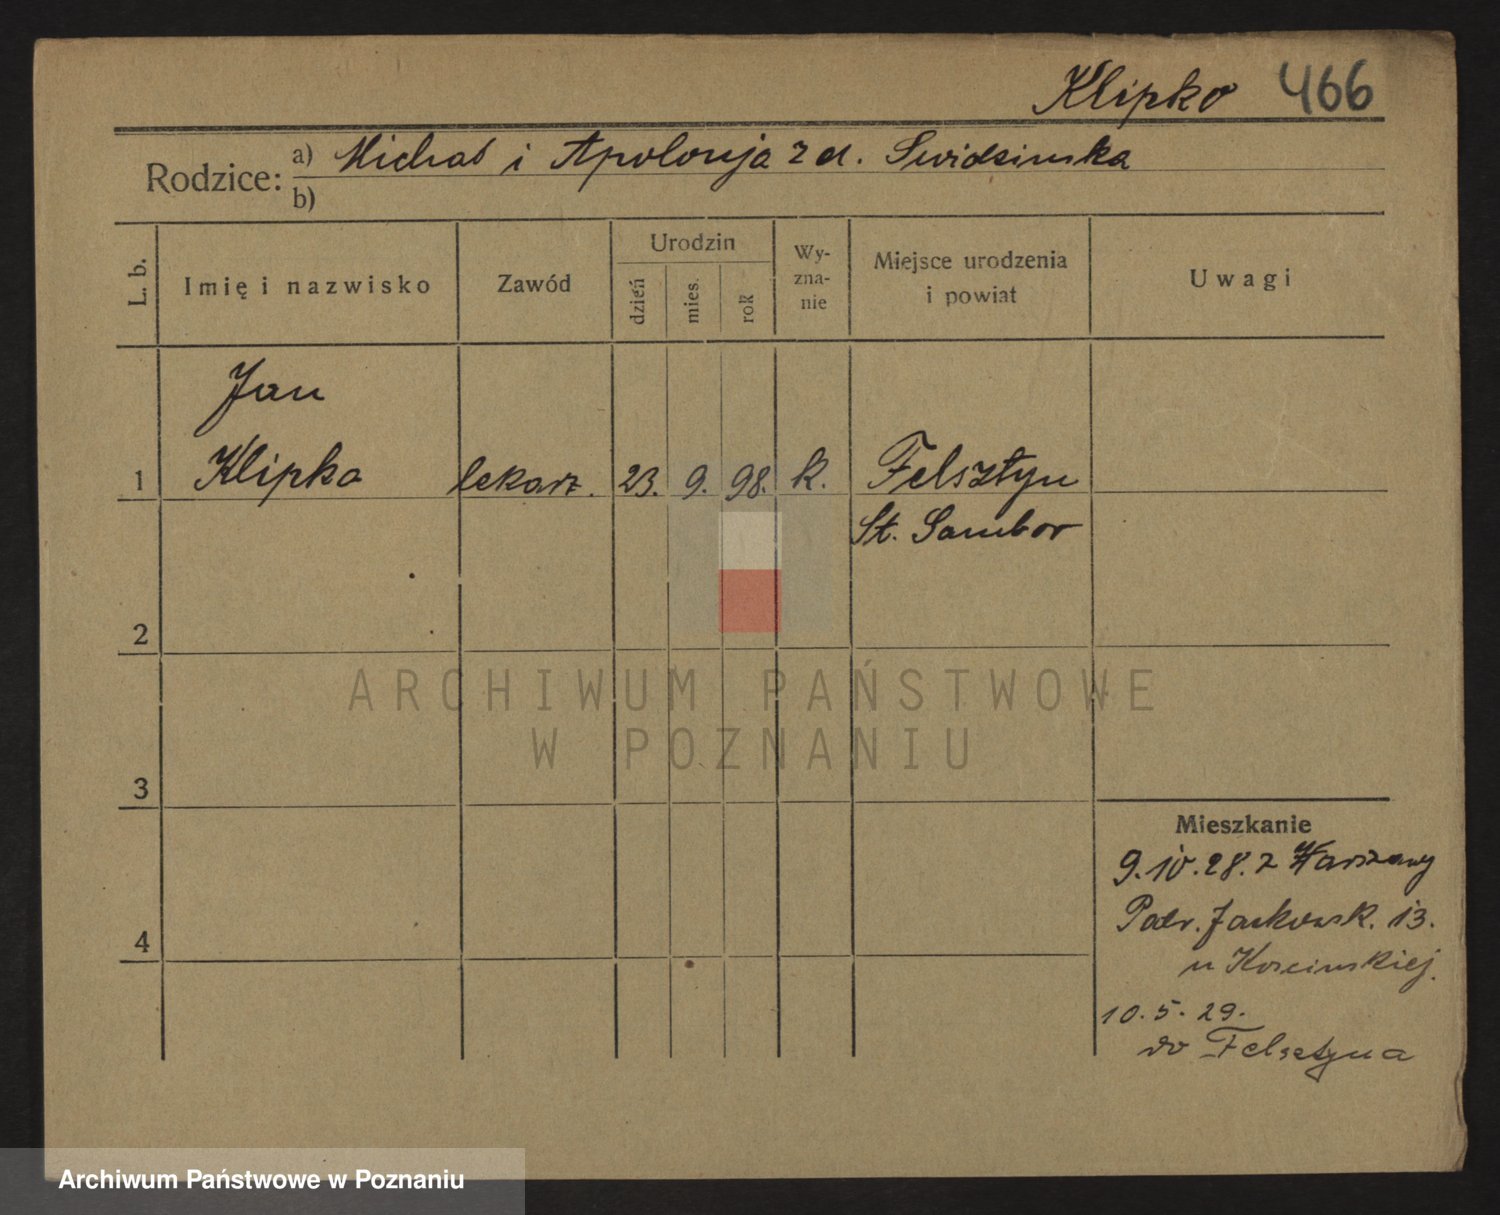 Klipko 466
Rodzice: a) Michał i Apolonja z d. Swidzinska
b)
L. b. Imię i nazwisko Zawód Urodzin dzień mies. rok Wyznanie Miejsce urodzenia i powiat Uwagi
Jan
1 Klipko lekarz. 23. 9. 98. k. Felsztyn
St. Sambor
2
ARCHIWUM PAŃSTWOWE
W POZNANIU
3
Mieszkanie
9.10.28. z Warszawy
Patr. Jackowsk. 13.
4
u
10. 5. 29.
do Felsztyna
Archiwum Państwowe w Poznaniu